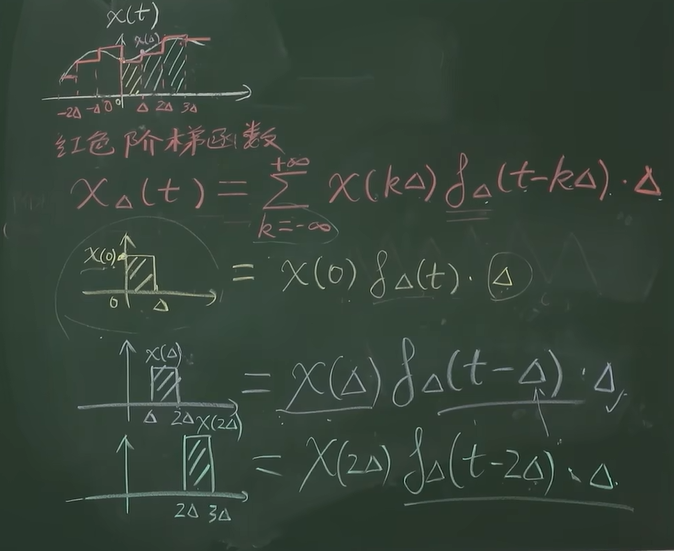 x(t)
x(Δ)
-2Δ -Δ 0 Δ 2Δ 3Δ
红色阶梯函数
x_Δ(t) = ∑_{k=-∞}^{+∞} x(kΔ) δ_Δ(t-kΔ)·Δ
x(0)
0 Δ
= x(0) δ_Δ(t)·Δ
x(Δ)
Δ 2Δ
= x(Δ) δ_Δ(t-Δ)·Δ
x(2Δ)
2Δ 3Δ
= x(2Δ) δ_Δ(t-2Δ)·Δ